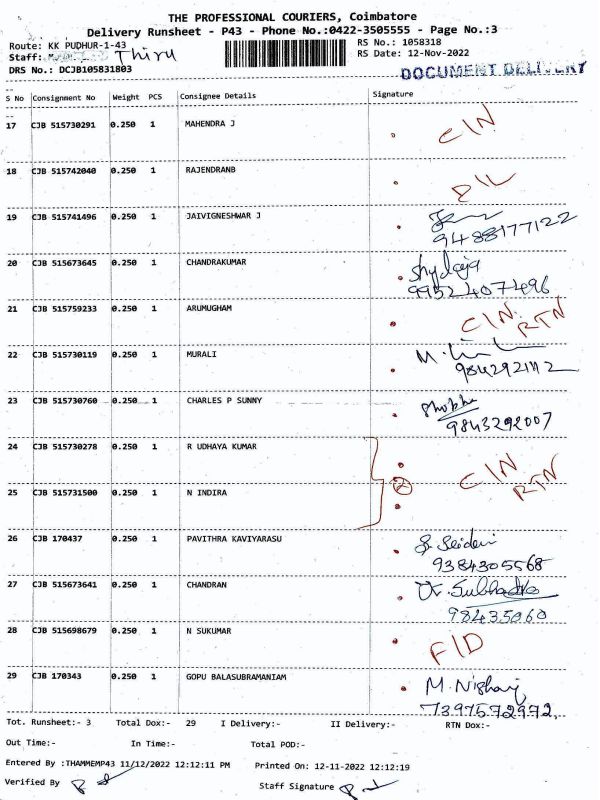 THE PROFESSIONAL COURIERS, Coimbatore
Delivery Runsheet - P43 - Phone No.:0422-3505555 - Page No.:3
Route: KK PUDHUR-1-43 RS No.: 1058318
Staff: Thiru RS Date: 12-Nov-2022
DRS No.: DCJB105831803 DOCUMENT DELIVERY
S No Consignment No Weight PCS Consignee Details Signature
17 CJB 515730291 0.250 1 MAHENDRA J CIN
18 CJB 515742040 0.250 1 RAJENDRANB
19 CJB 515741496 0.250 1 JAIVIGNESHWAR J
9488177122
20 CJB 515673645 0.250 1 CHANDRAKUMAR Shylaja
9952407496
21 CJB 515759233 0.250 1 ARUMUGHAM CIN RTN
22 CJB 515730119 0.250 1 MURALI M.
23 CJB 515730760 0.250 1 CHARLES P SUNNY Shobha
9843292007
24 CJB 515730278 0.250 1 R UDHAYA KUMAR CIN
25 CJB 515731500 0.250 1 N INDIRA 2 RTN
26 CJB 170437 0.250 1 PAVITHRA KAVIYARASU
9384305568
27 CJB 515673641 0.250 1 CHANDRAN
98435060
28 CJB 515698679 0.250 1 N SUKUMAR F/D
29 CJB 170343 0.250 1 GOPU BALASUBRAMANIAM M.
7397572972
Tot. Runsheet:- 3 Total Dox:- 29 I Delivery:- II Delivery:- RTN Dox:-
Out Time:- In Time:- Total POD:-
Entered By :THAMMEMP43 11/12/2022 12:12:11 PM Printed On: 12-11-2022 12:12:19
Verified By Staff Signature